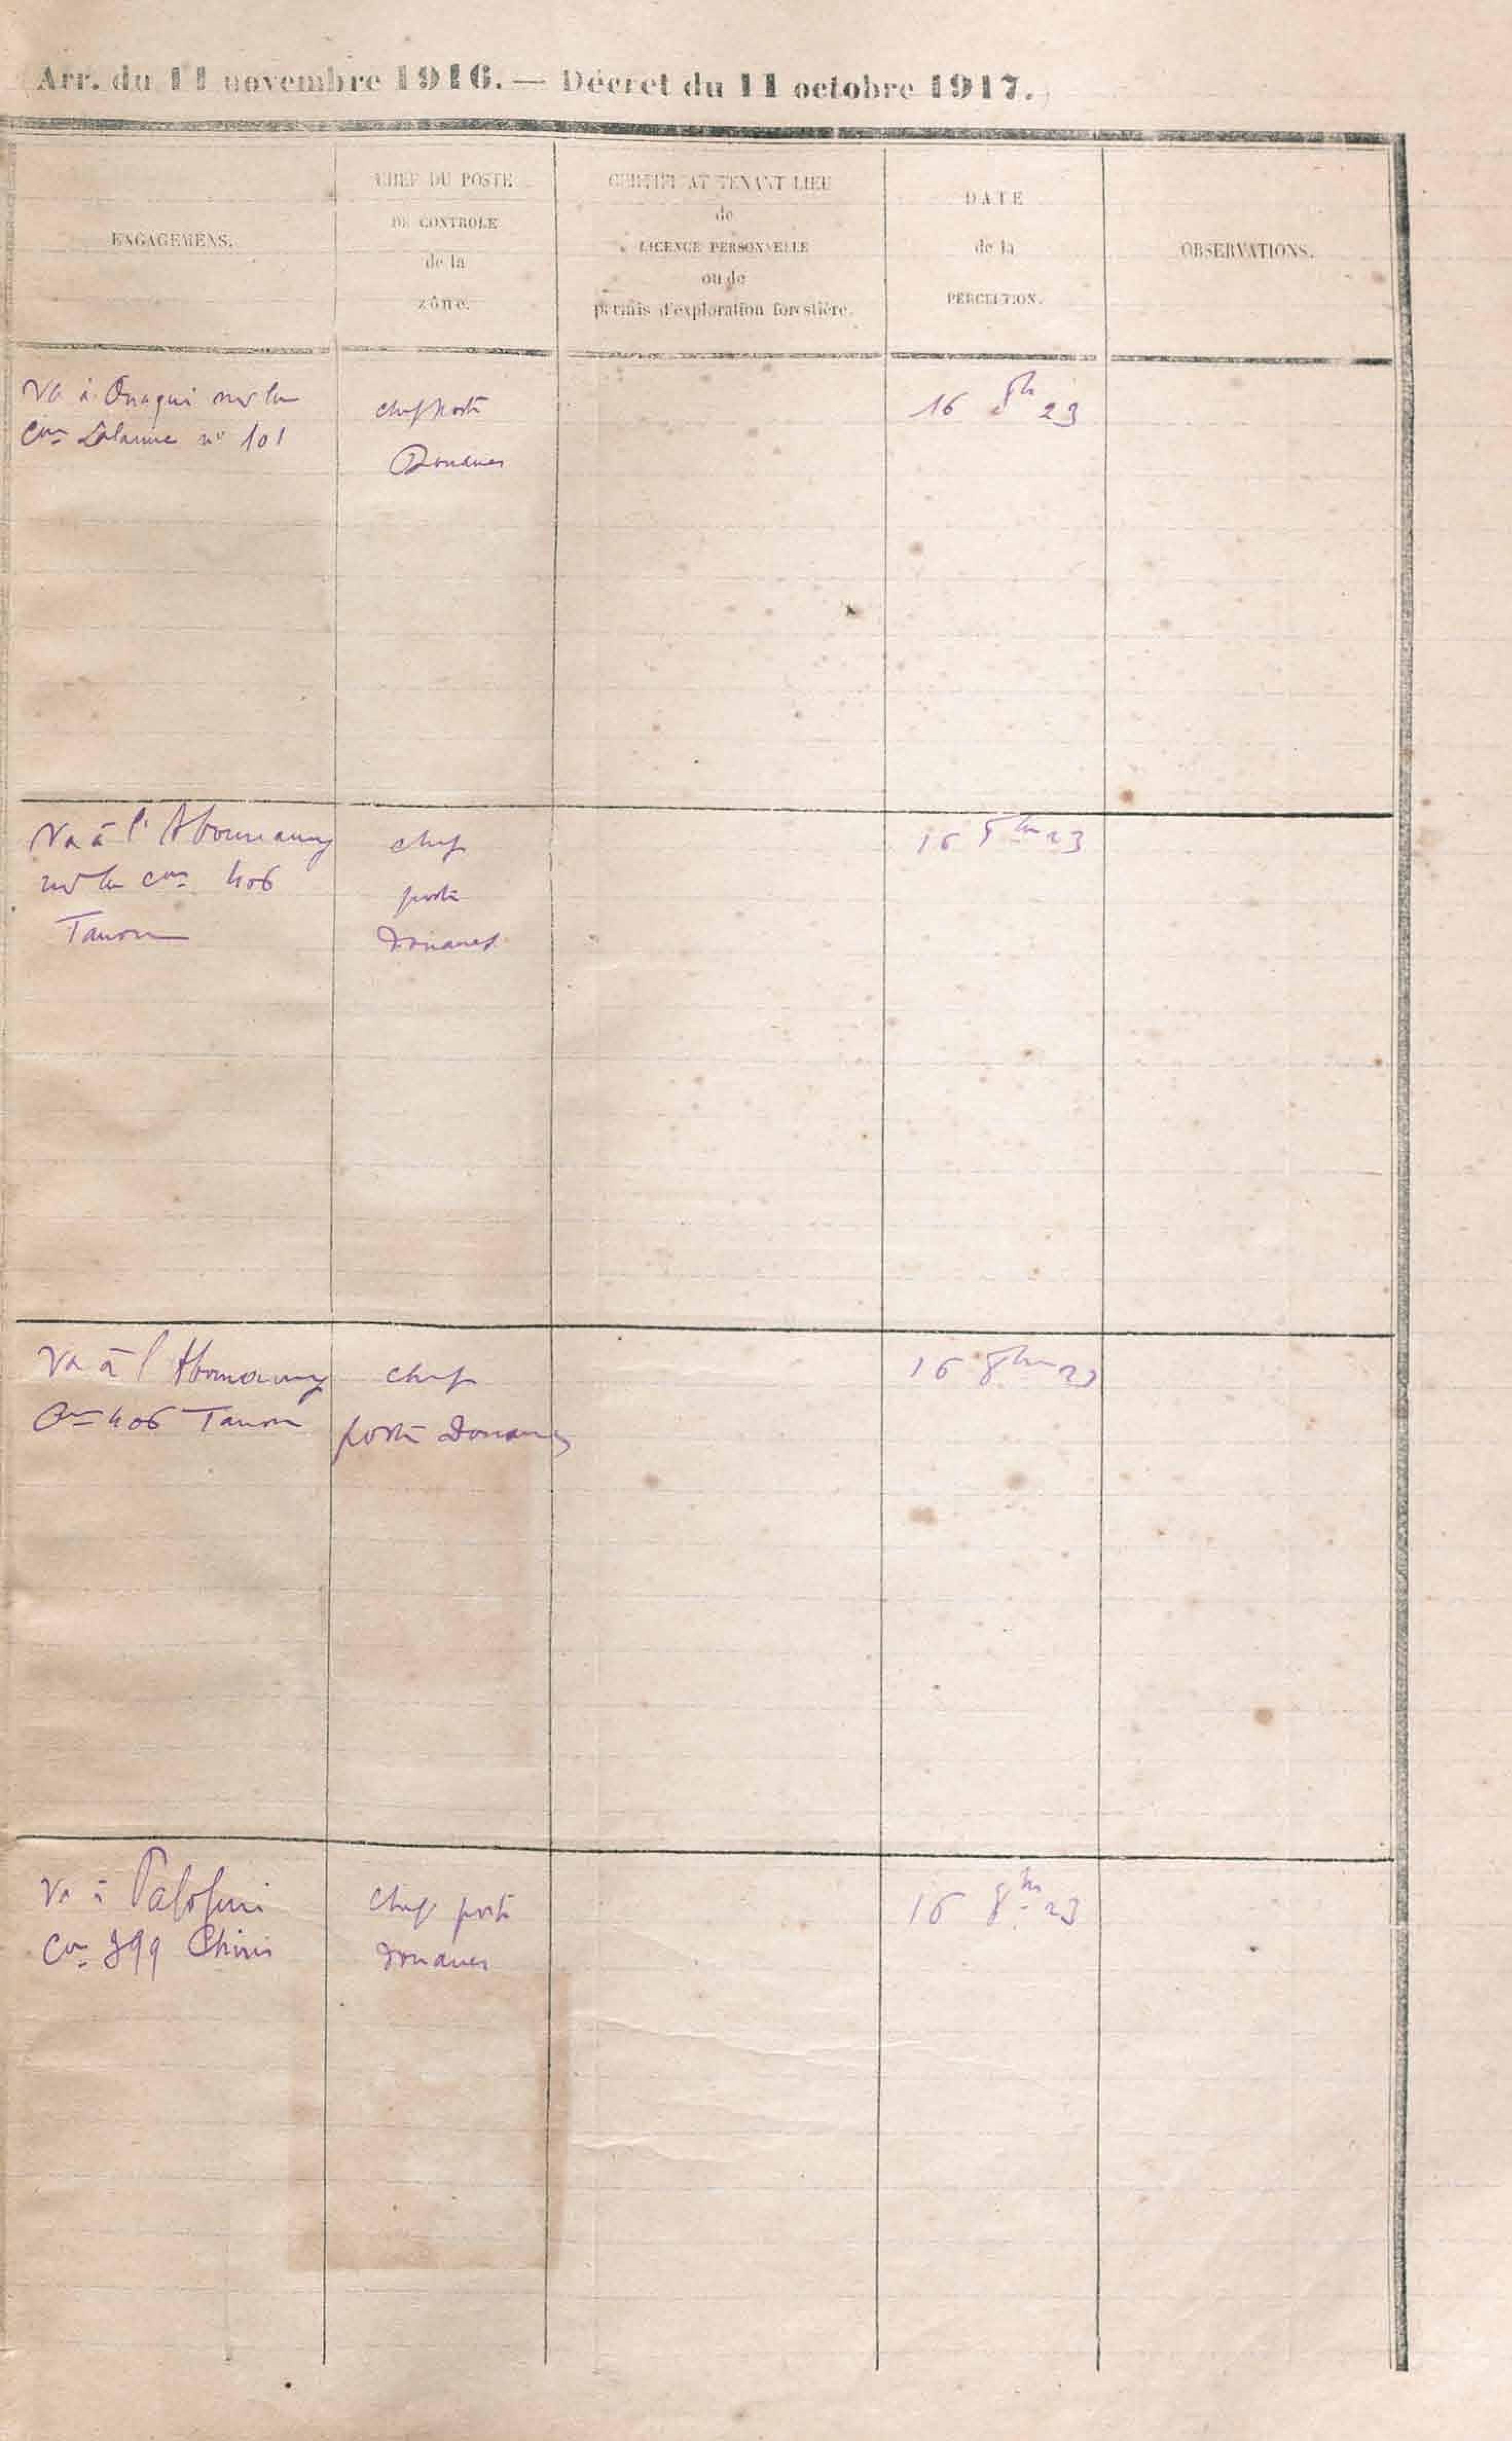 Arr. du 11 novembre 1916. — Décret du 11 octobre 1917.
ENGAGEMENS.
CHEF DU POSTE
DE CONTROLE
de la
zône.
CERTIFICAT TENANT LIEU
de
LICENCE PERSONNELLE
ou de
permis d'exploration forestière.
DATE
de la
PERCEPTION.
OBSERVATIONS.
Va à Ouaqui sur la
con Lalanne no 101
chef poste
Douanes
16 8bre 23
Va à l'Abounamy
sur la con 406
Tanon
chef
poste
Douanes
16 8bre 23
Va à l'Abounamy
con 406 Tanon
chef
poste Douanes
16 8bre 23
Va à
con 399
chef poste
Douanes
16 8bre 23